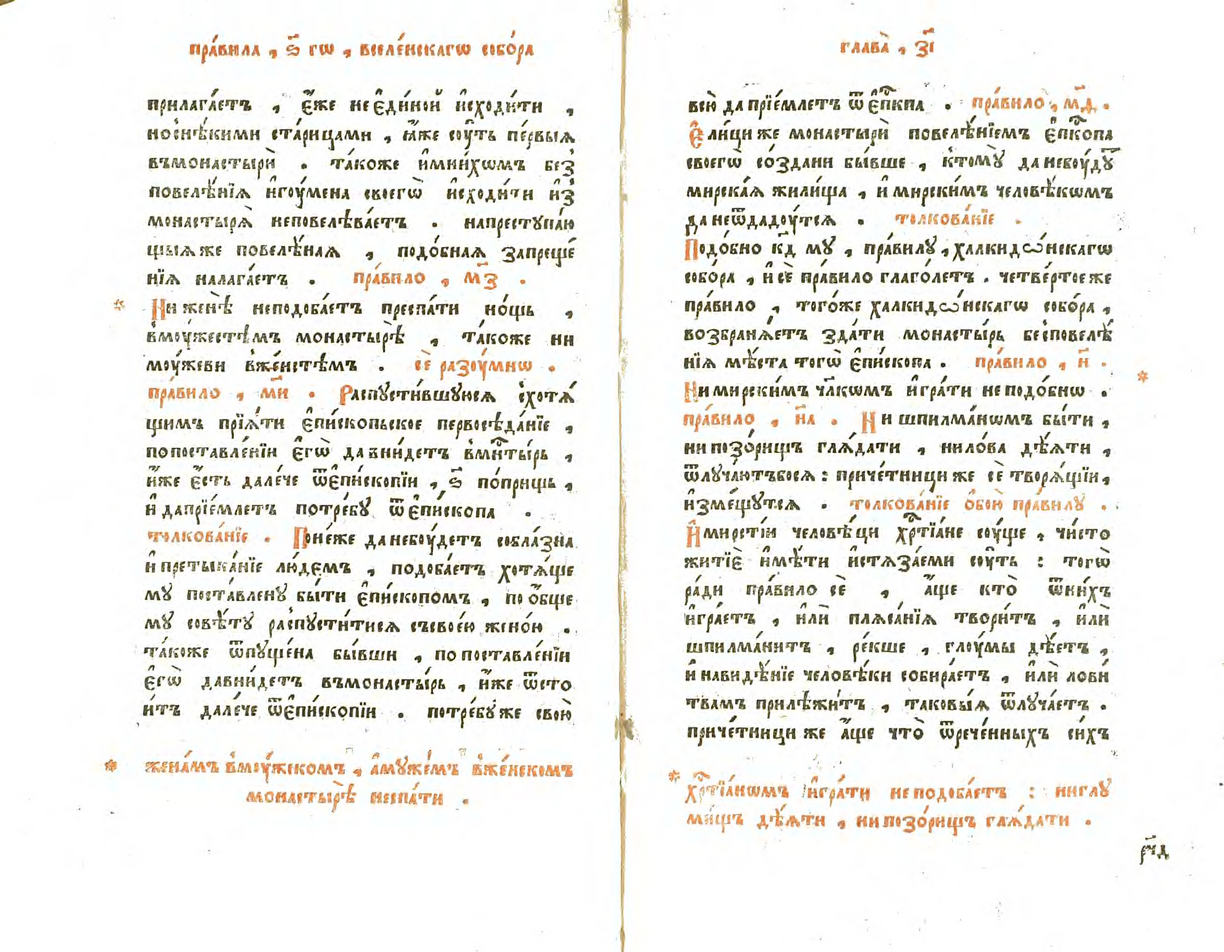 пра́вила , ѕ҃ гѡ , вселе́нскагѡ собо́ра
прилага́етъ , є҆́же не є҆ди́ной и҆сходи́ти ,
но снѣ́кими ста́рицами , ꙗ҆́же сꙋ́ть пе́рвыѧ
въмонастырѝ . та́коже и҆мни́хѡмъ без̾
повелѣ́нїѧ и҆гꙋ́мена своегѡ̀ и҆сходи́ти и҆з̾
монастырѧ̀ неповелѣва́етъ . напрестꙋпа́ю
щыѧ же повелѣ́наѧ , подо́бнаѧ запреще́
нїѧ налага́етъ . пра́вило , м҃з .
Ни женѣ̀ неподоба́етъ преспа́ти но́щь ,
вмꙋ́жестѣмъ монастырѣ̀ , та́коже ни
мꙋ́жеви вже́нстѣмъ . сѐ разꙋ́мнѡ .
пра́вило , м҃и . Распꙋсти́вшꙋюсѧ схотѧ́
щимъ прїѧ́ти є҆пи́скопьское первосѣда́нїе ,
попоставле́нїи є҆гѡ̀ давни́детъ вмⷭ҇ты́рь ,
и҆́же є҆́сть дале́че ѿє҆пископїи , ѕ҃ по́прищь ,
и҆ даприе́млетъ потре́бꙋ ѿ є҆пи́скопа .
толкова́нїе . Поне́же данебꙋ́детъ собла́зна
и҆ претыка́нїе лю́демъ , подоба́етъ хотѧ́ще
мꙋ поста́вленꙋ бы́ти є҆пи́скопомъ , по ѻ҆́бще
мꙋ совѣ́тꙋ распꙋсти́тисѧ съсвое́ю жено́ю .
та́коже ѿпꙋще́на бы́вши , попоставле́нїи
є҆гѡ̀ давни́детъ въмонасты́рь , и҆́же ѿсто
и́тъ дале́че ѿє҆пископїи . потре́бꙋ же свою̀
* жена́мъ вмꙋ́жском , а҆мꙋже́мъ вже́нском
монастырѣ̀ неспа́ти .
глава̀ , з҃і
всю̀ да прїе́млетъ ѿ є҆пⷭ҇кпа . пра́вило , м҃д .
Є҆ли́цы же монастырѝ повелѣ́нїемъ є҆пⷭ҇копа
своегѡ̀ со́здани бы́вше , ктомꙋ̀ данебꙋ́дꙋ
мирска́ѧ жили́ща , и҆ мирски́мъ человѣ́кѡмъ
да неѿдадꙋ́тсѧ . толкова́нїе .
Подо́бно к҃д мꙋ , пра́вилꙋ , халкидѡ́нскагѡ
собо́ра , и҆ сѐ пра́вило глаго́летъ . четве́ртое же
пра́вило , того́же халкидѡ́нскагѡ собо́ра ,
возбранѧ́етъ зда́ти монасты́рь бесповелѣ́
нїѧ мѣ́ста тогѡ̀ є҆пи́скопа . пра́вило , н҃ .
Ни мирски́мъ чл҃кѡмъ и҆гра́ти не подо́бнѡ .
пра́вило , н҃а . Ни шпилма́нѡмъ бы́ти ,
ни позо́рищь глѧ́дати , нило́ва дѣ́ѧти ,
ѿлꙋча́ютъбосѧ : приче́тницы же сѐ творѧ́щїи ,
и҆зме́щꙋтсѧ . толкова́нїе ѻ҆бою̀ пра́вилꙋ .
И҆мирсті́и человѣ́цы хрⷭ҇тїа́не сꙋ́ще , чи́сто
житїѐ и҆мѣ́ти и҆стѧза́еми сꙋ́ть : тогѡ̀
ра́ди пра́вило сѐ , а҆́ще кто̀ ѿни́хъ
и҆гра́етъ , и҆лѝ плѧса́нїѧ твори́тъ , и҆лѝ
шпилма́нитъ , ре́кше , глꙋ́мы дѣ́етъ ,
и҆ навидѣ́нїе человѣ́ки собира́етъ , и҆лѝ лови́
твамъ прилѣжи́тъ , таковы́ѧ ѿлꙋча́етъ .
приче́тницы же а҆́ще что̀ ѿрече́нныхъ си́хъ
* хрⷭ҇тїа́нѡмъ и҆гра́ти неподоба́етъ : ниглꙋ
ми́щъ дѣ́ѧти , нипозо́рищъ глѧ́дати .
рч҃д